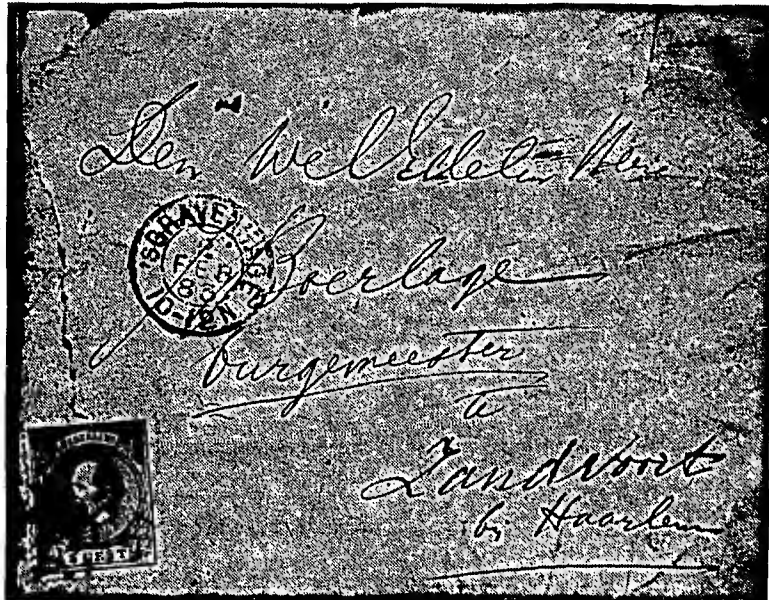 Den WelEdelen Heer
'SGRAVENHAGE
FEB
83
Boerlage
burgemeester
te
Zandvoort
bij Haarlem